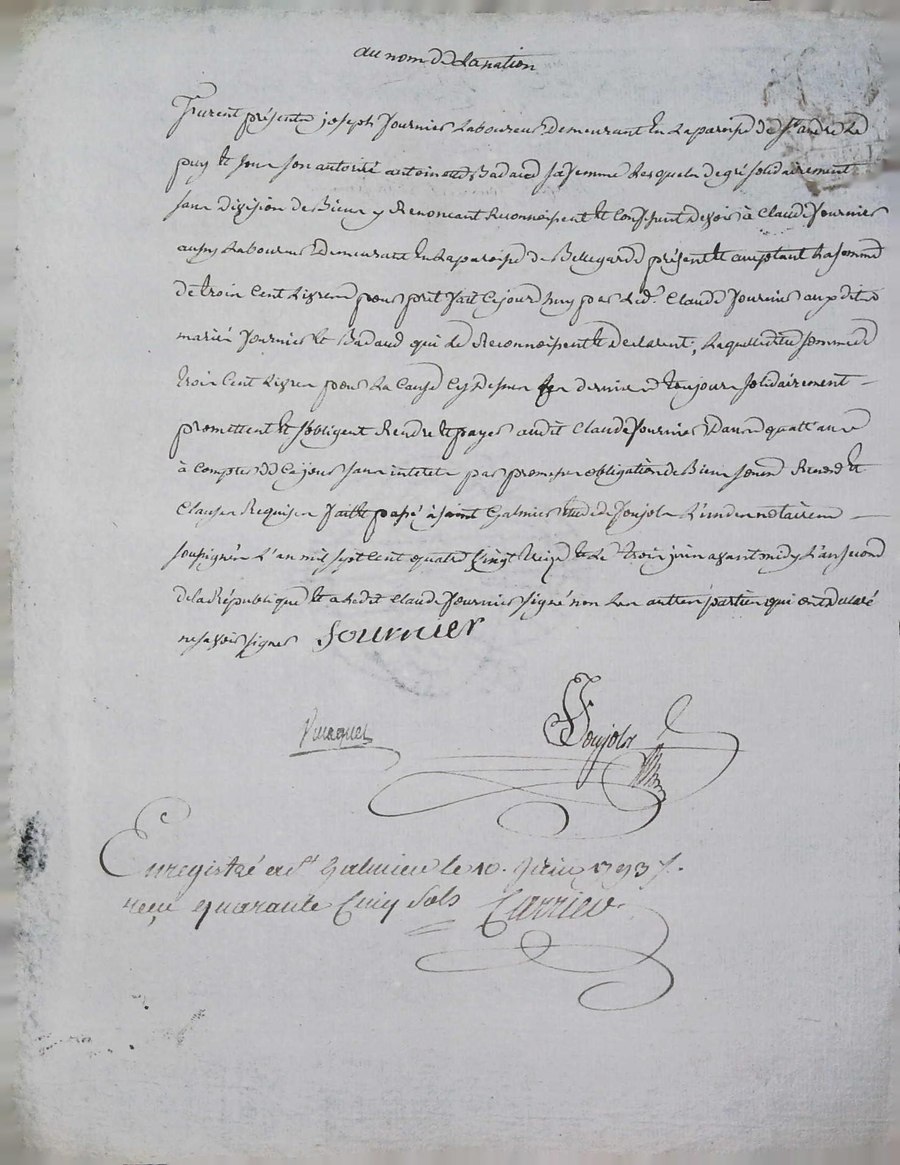 au nom de la nation
Furent présents joseph fournier Laboureur demeurant en la paroisse de St andré Le
puy et sous son autorité antoinette Badaud sa femme Lesquels de gré solidairement
sans division de Biens y Renoncant Reconnoissent et Confessent devoir à Claude fournier
aussy Laboureur demeurant en la paroisse de Bellegarde présent et acceptant La somme
de trois Cent Livres pour prêt fait Cejourdhuy par Ledt. Claude fournier auxdits
mariés fournier et Badaud qui Le Reconnoissent et declarent, Laquelle dte somme de
trois Cent Livres pour La Cause Cy dessus Ces derniers toujours solidairement
promettent et s'obligent Rendre et payer audit Claude fournier dans quatre ans
à Compter de Ce jour sans interets par promesse obligation de Biens
Clauses Requises fait et passé à saint Galmier etude de foujols L'un des notaires
soussignés L'an mil sept Cent quatre vingt treize et Le trois juin avant midy L'an second
de la République et a Ledit Claude fournier signé non Les autres parties qui ont declaré
ne savoir signer fournier
foujols
Enregistré a St Galmier le 10. juin 1793
reçu quarante Cinq sols Carrier